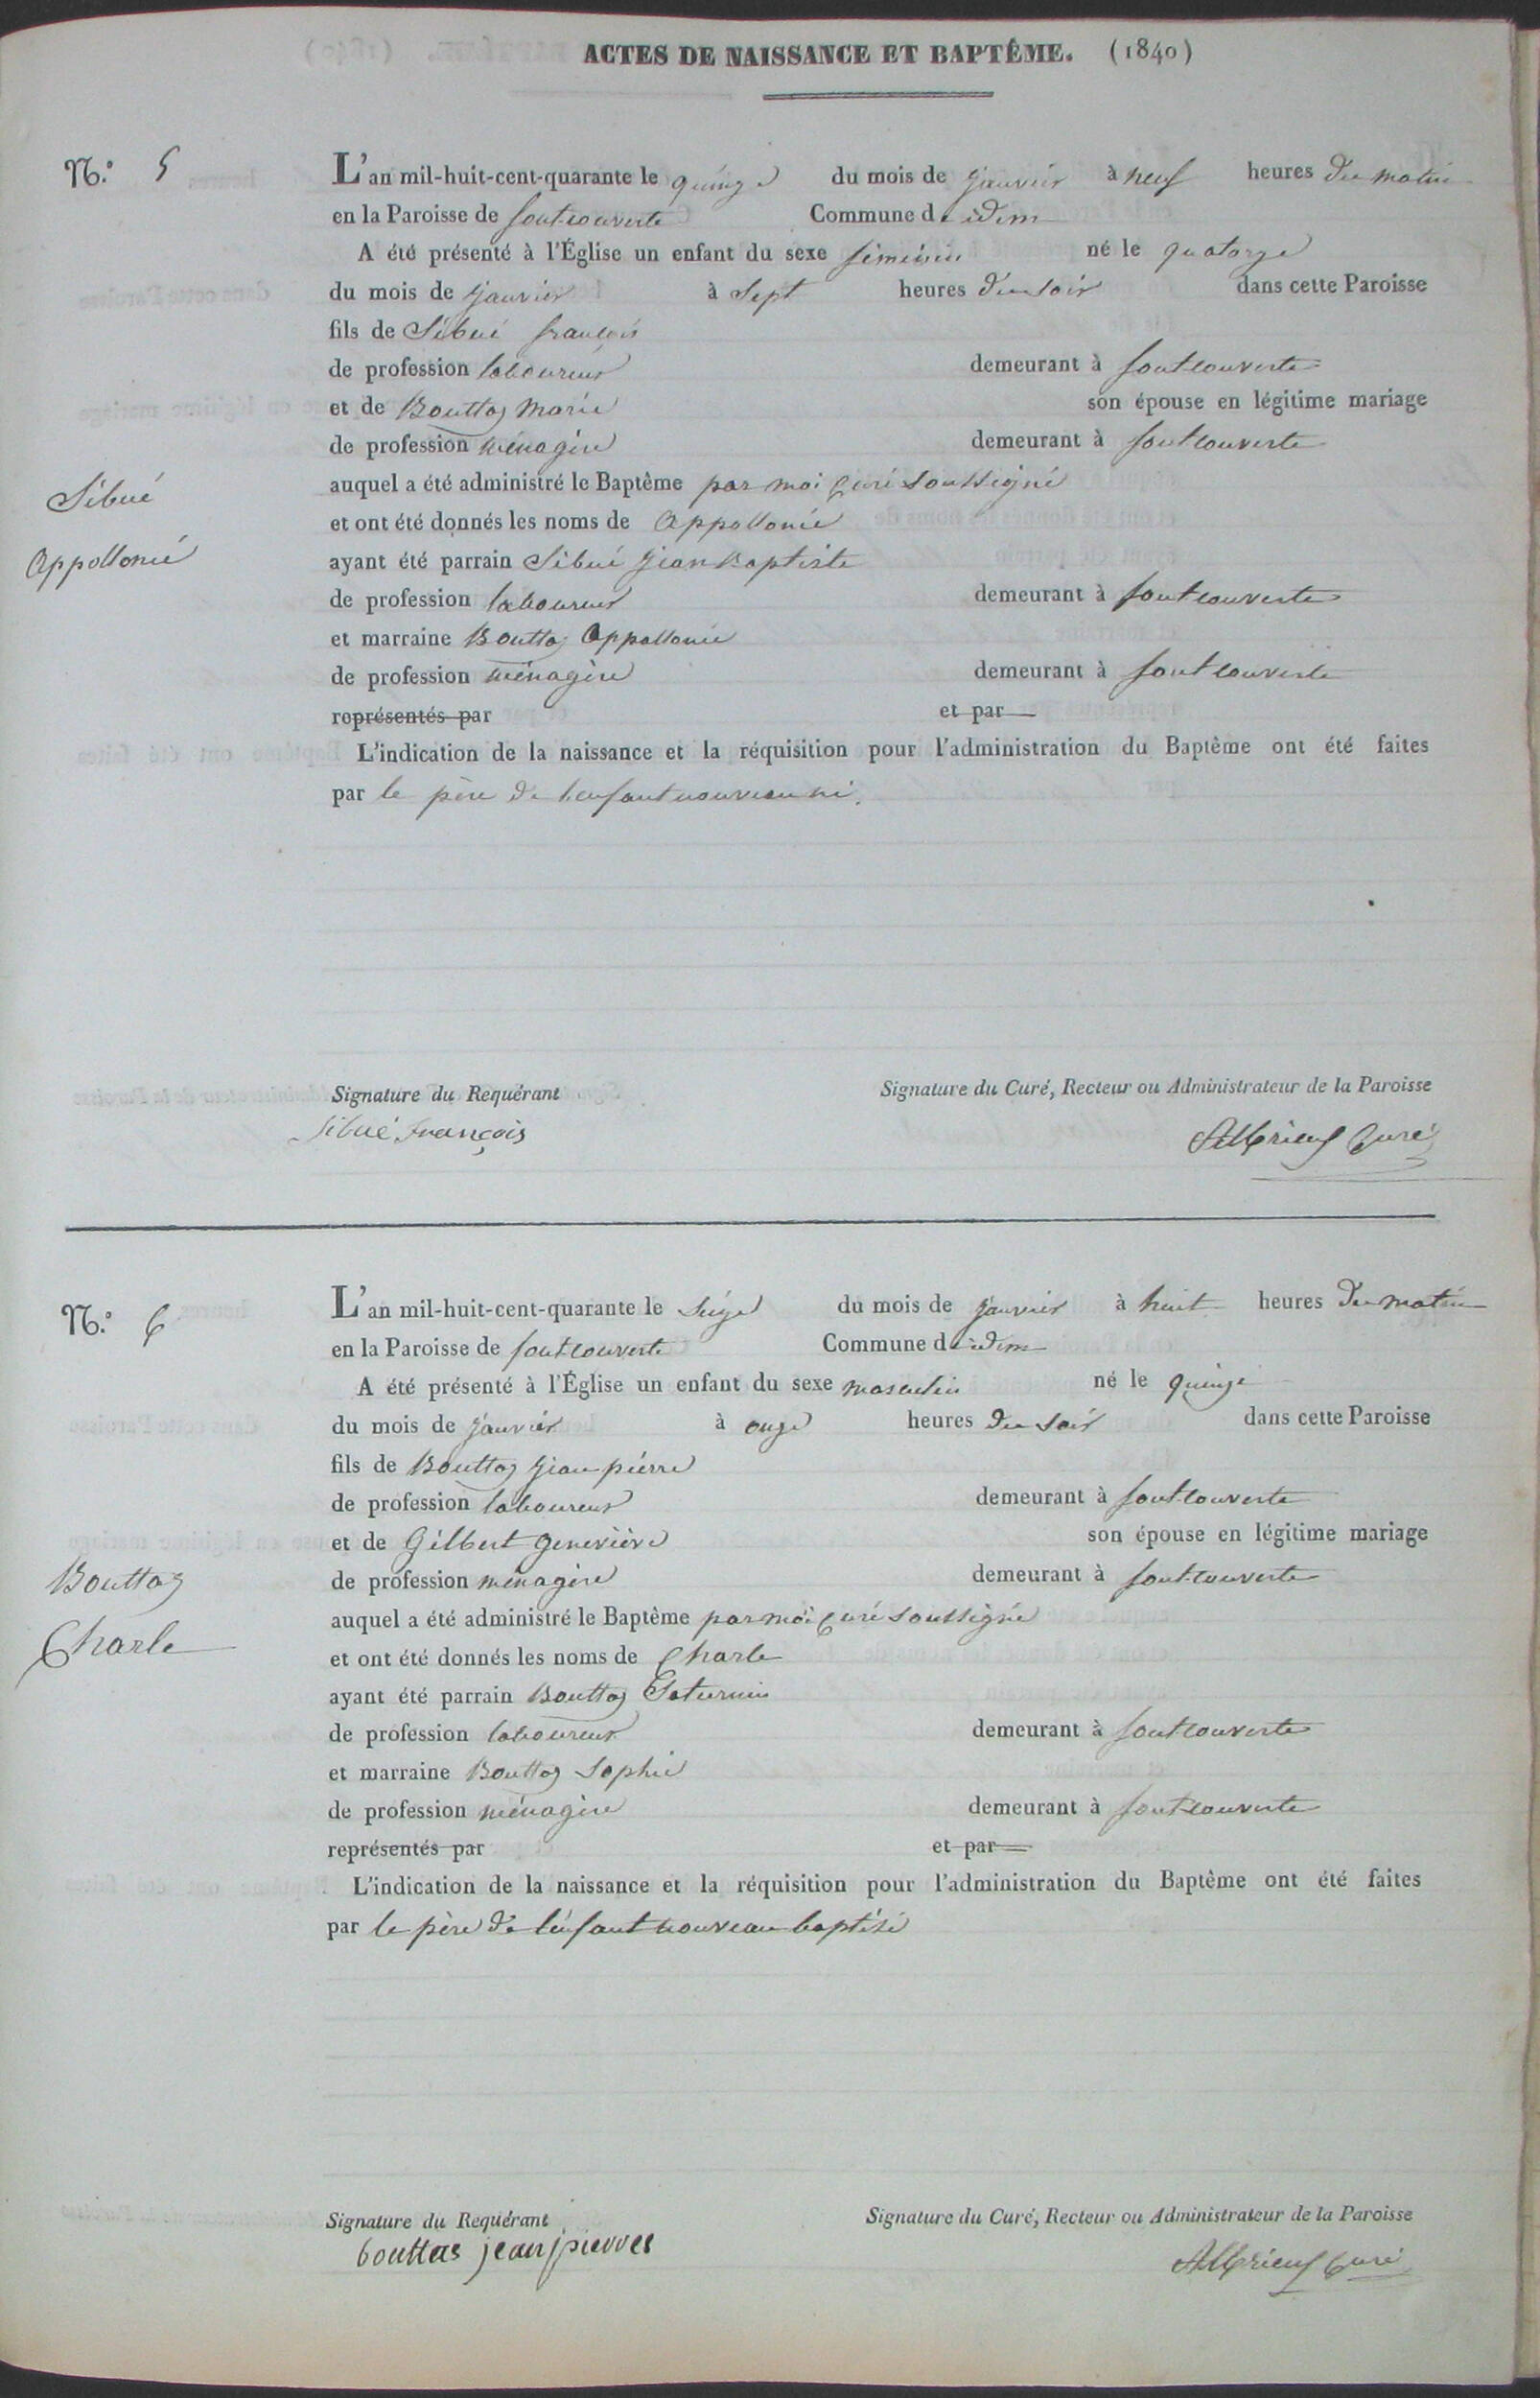 ACTES DE NAISSANCE ET BAPTÊME. (1840)
N.º 5
L'an mil-huit-cent-quarante le quinze du mois de janvier à neuf heures du matin
en la Paroisse de fontcouverte Commune de idem
A été présenté à l'Église un enfant du sexe féminin né le quatorze
du mois de janvier à sept heures du soir dans cette Paroisse
fils de Sibué françois
de profession laboureur demeurant à fontcouverte
et de Bouttaz Marie son épouse en légitime mariage
de profession ménagère demeurant à fontcouverte
auquel a été administré le Baptême par moi Curé soussigné
Sibué
et ont été donnés les noms de Appollonie
Appollonie
ayant été parrain Sibué Jean Baptiste
de profession laboureur demeurant à fontcouverte
et marraine Bouttaz Appollonie
de profession ménagère demeurant à fontcouverte
représentés par et par
L'indication de la naissance et la réquisition pour l'administration du Baptême ont été faites
par le père de l'enfant nouveau né.
Signature du Requérant Signature du Curé, Recteur ou Administrateur de la Paroisse
Sibué François Curé
N.º 6
L'an mil-huit-cent-quarante le seize du mois de janvier à huit heures du matin
en la Paroisse de fontcouverte Commune de idem
A été présenté à l'Église un enfant du sexe masculin né le quinze
du mois de janvier à onze heures du soir dans cette Paroisse
fils de Bouttaz Jean pierre
de profession laboureur demeurant à fontcouverte
et de Gilbert Geneviève son épouse en légitime mariage
Bouttaz
de profession ménagère demeurant à fontcouverte
auquel a été administré le Baptême par moi Curé soussigné
Charle
et ont été donnés les noms de Charle
ayant été parrain Bouttaz Saturnin
de profession laboureur demeurant à fontcouverte
et marraine Bouttaz Sophie
de profession ménagère demeurant à fontcouverte
représentés par et par
L'indication de la naissance et la réquisition pour l'administration du Baptême ont été faites
par le père de l'enfant nouveau baptisé
Signature du Requérant Signature du Curé, Recteur ou Administrateur de la Paroisse
bouttas jean pierres Curé